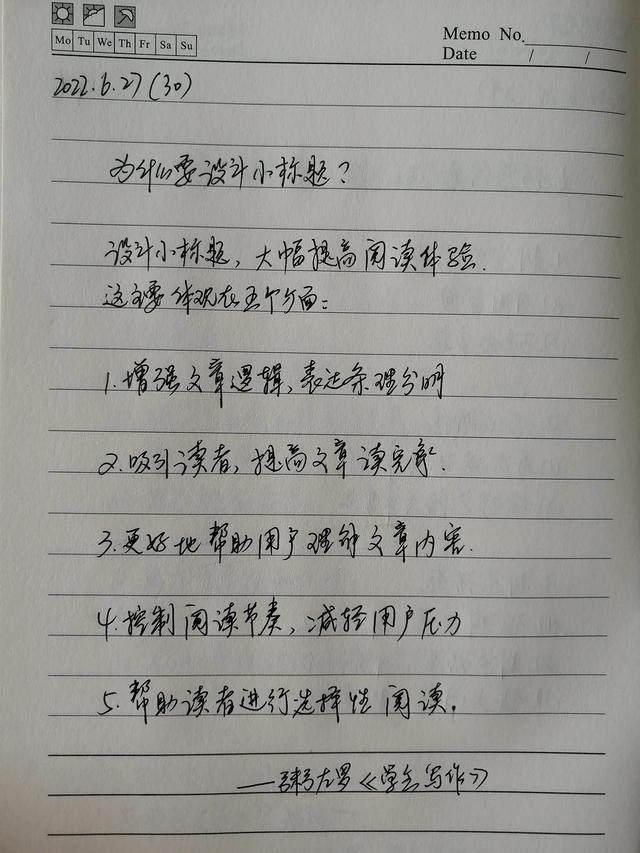 Mo Tu We Th Fr Sa Su
Memo No.
Date / /
2022.6.27(30)
为什么要设计小标题?
设计小标题,大幅提高阅读体验.
这主要体现在五个方面:
1.增强文章逻辑,表达条理分明
2.吸引读者,提高文章读完率.
3.更好地帮助用户理解文章内容.
4.控制阅读节奏,减轻用户压力
5.帮助读者进行选择性阅读。
——粥左罗《学会写作》